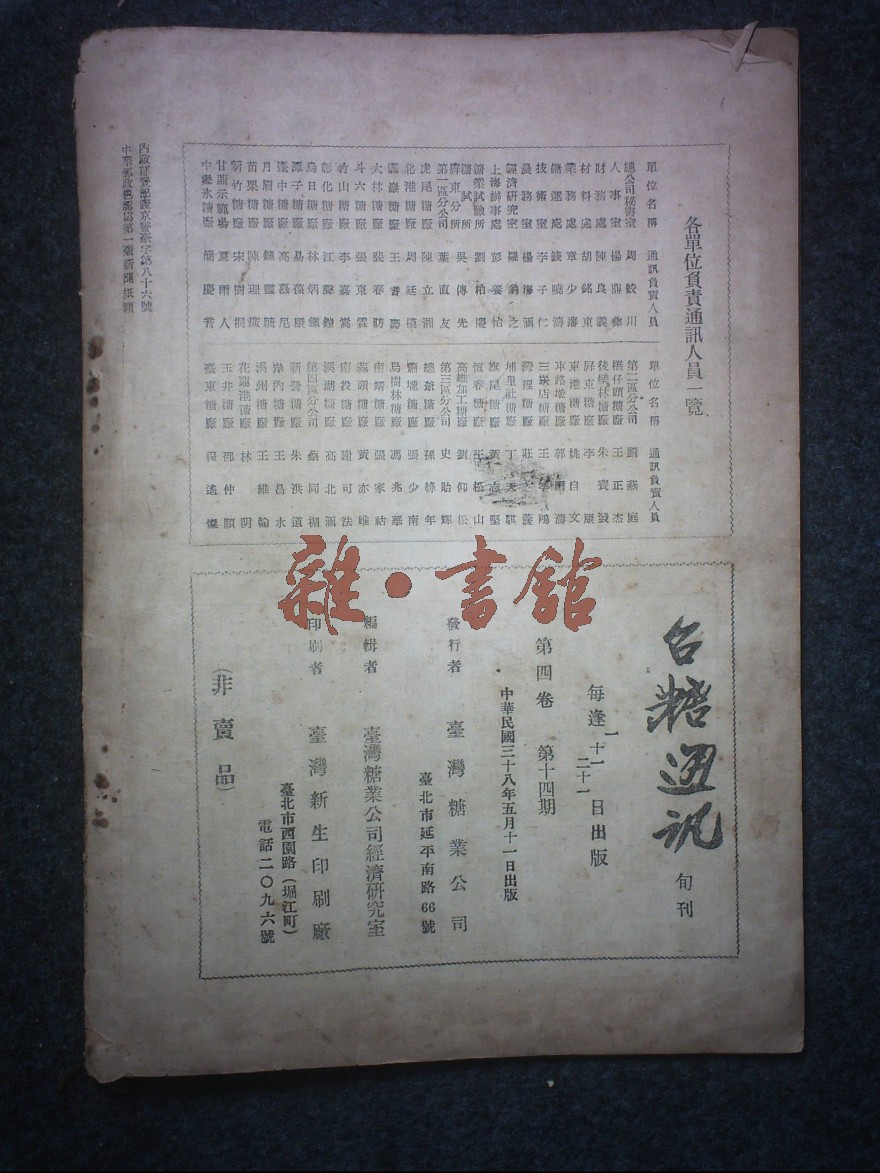 各單位負責通訊人員一覽
單位名稱 通訊負責人員
總公司秘書室 周 蛟 川
人事室 楊 鼎
財務處 陳 良 義
材料處 胡 銘 東
業務處 章 少
儲運處 錢 曉 濤
技術室 李 子 仁
農務室 楊 海
經濟研究室 羅 之
上海辦事處 彭
糖業試驗所 劉 柏 慶
屏東分所 吳 傳 先
第一區分公司 葉 直 友
虎尾糖廠 陳 立 湘
北港糖廠 周 廷
糖廠 王 者
大林糖廠 裴 春
斗六糖廠 張 東 霖
竹山糖廠 李 嘉 嵩
彰化糖廠 江
烏日糖廠 林 炳
潭子糖廠 易 葆 康
臺中糖廠 高 慕 尼
月眉糖廠
苗栗糖廠 陳 理
新竹糖廠 宋 樹 桐
甘蔗示範場 夏 雨 人
中糖廠 簡 慶
單位名稱 通訊負責人員
第二區分公司 劉 燕 庭
橋仔頭糖廠 王 正 杰
後壁林糖廠 朱 寶
屏東糖廠 李 康
東港糖廠 姚 自 文
車路墘糖廠 郭 雨 濤
三崁店糖廠 王 鴻
灣裡糖廠 莊
埔里社糖廠 丁 天 騏
旗尾糖廠 黃 志 堅
恆春糖廠 王 松 山
高雄加工糖廠 劉 仰 松
第三區分公司 史 貽 輝
總爺糖廠 孫 年
蕭壠糖廠 張 少 南
烏樹林糖廠 馮 兆 華
南靖糖廠 張 家 祜
蒜頭糖廠 黃 亦 雄
南投糖廠 謝 可 法
溪湖糖廠 高 北 涵
第四區分公司 蔡 同
新營糖廠 朱 洪 道
岸內糖廠 王 昌 水
溪州糖廠 王 維 翰
花蓮港糖廠 林 明
玉井糖廠 邵 仲 頤
臺東糖廠 程 遙
內政部登記證京警臺字第八十六號
台糖通訊 旬刊
每逢 一 十一 二十一 日出版
第四卷 第十四期
中華民國三十八年五月十一日出版
發行者 臺灣糖業公司
臺北市延平南路66號
編輯者 臺灣糖業公司經濟研究室
印刷者 臺灣新生印刷廠
臺北市西園路(堀江町)
電話二〇九六號
(非賣品)
雜・書館